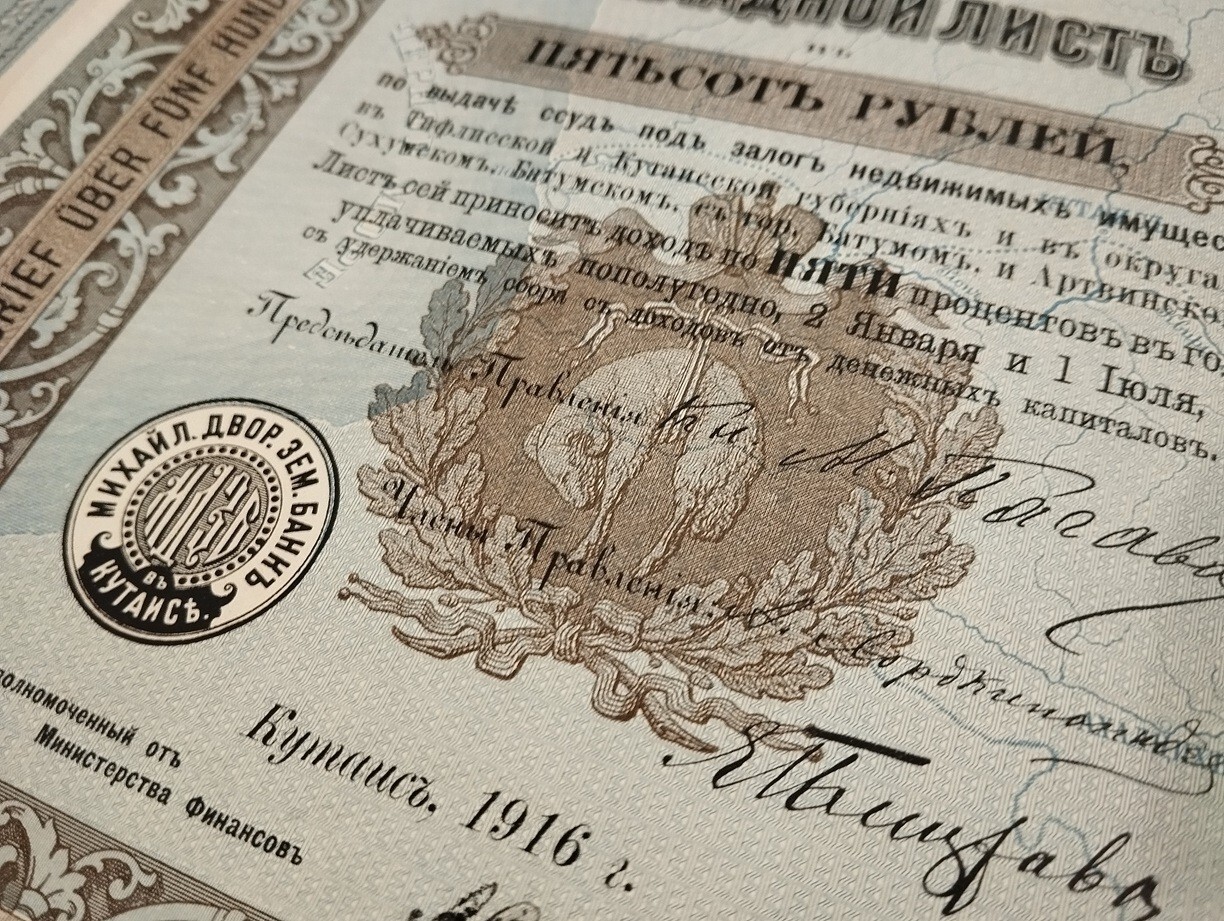 RIEF ÜBER FÜNF HUND
ЛИСТЪ
ВЪ
ПЯТЬСОТЪ РУБЛЕЙ,
по выдачѣ ссудъ подъ залогъ недвижимыхъ имущес
въ Тифлисской и Кутаисской губерніяхъ и въ округа
Сухумскомъ, Батумскомъ, съ гор. Батумомъ, и Артвинско
Листъ сей приноситъ доходъ по ПЯТИ процентовъ въ го
уплачиваемыхъ пополугодно, 2 Января и 1 Іюля,
съ удержаніемъ сбора съ доходовъ отъ денежныхъ капиталовъ.
Предсѣдатель Правленія
Члены Правленія:
МИХАЙЛ. ДВОР. ЗЕМ. БАНКЪ
ВЪ
КУТАИСѢ.
Кутаисъ. 1916 г.
полномоченный отъ
Министерства Финансовъ